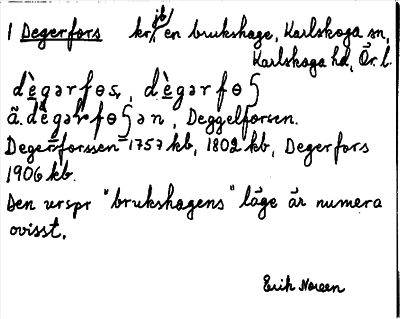 1 Degerfors kr, jb/ en brukshage, Karlskoga sn,
Karlskoga hd, Ör. l.
dègərfɵs, dègərfɵʃ
ã. dègərfɵʃən, Deggelforsen.
Degerforssen 1757 kb, 1802 kb, Degerfors
1906 kb.
Den urspr "brukshagens" läge är numera
ovisst.
Erik Noreen